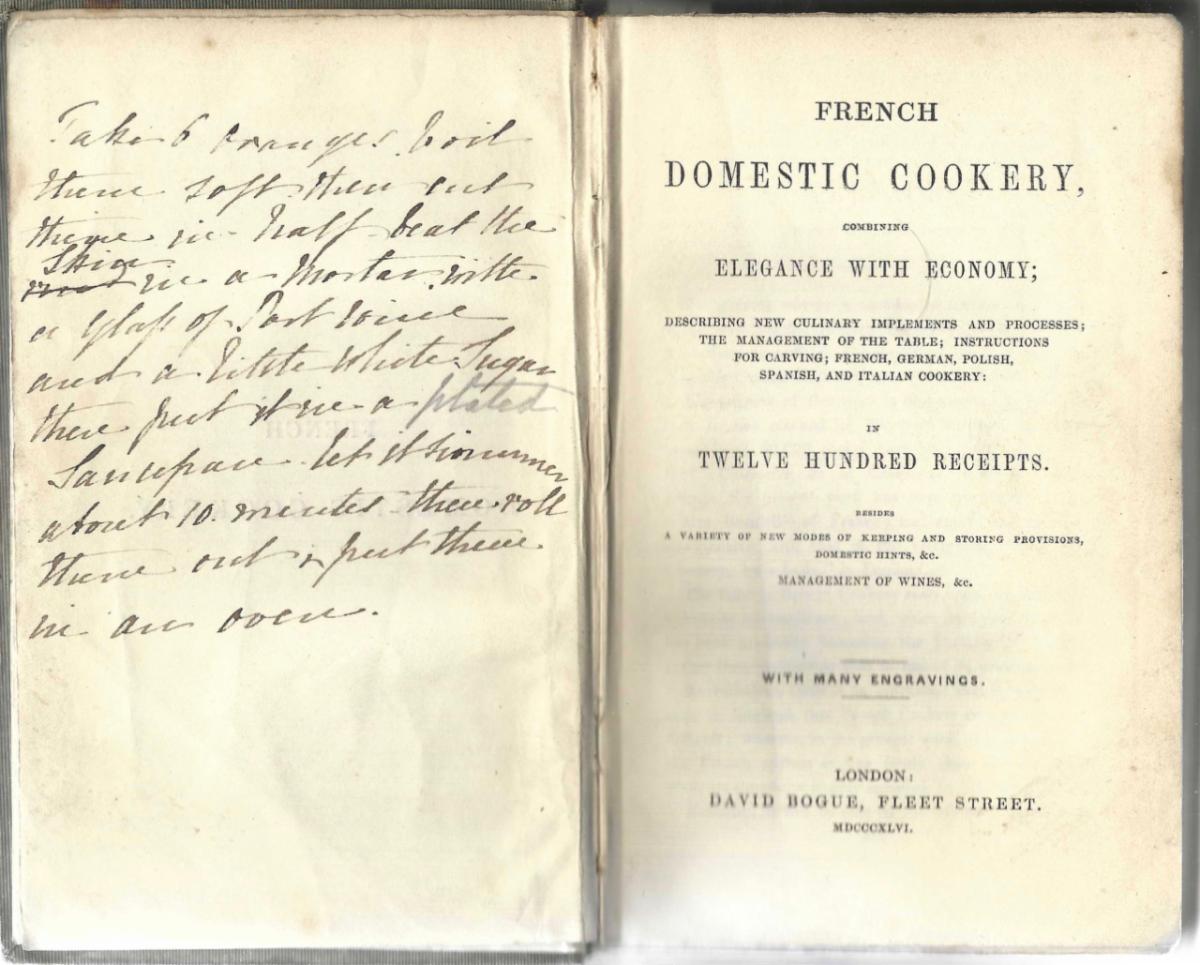 Take 6 oranges. boil
them soft then cut
them in half beat the
Skin
in a Mortar with
a Glass of Port wine
and a little white Sugar
then put it in a plated
Saucepan let it simmer
about 10 minutes then roll
them out & put them
in an oven.
FRENCH
DOMESTIC COOKERY,
COMBINING
ELEGANCE WITH ECONOMY;
DESCRIBING NEW CULINARY IMPLEMENTS AND PROCESSES;
THE MANAGEMENT OF THE TABLE; INSTRUCTIONS
FOR CARVING; FRENCH, GERMAN, POLISH,
SPANISH, AND ITALIAN COOKERY:
IN
TWELVE HUNDRED RECEIPTS.
BESIDES
A VARIETY OF NEW MODES OF KEEPING AND STORING PROVISIONS,
DOMESTIC HINTS, &c.
MANAGEMENT OF WINES, &c.
WITH MANY ENGRAVINGS.
LONDON:
DAVID BOGUE, FLEET STREET.
MDCCCXLVI.